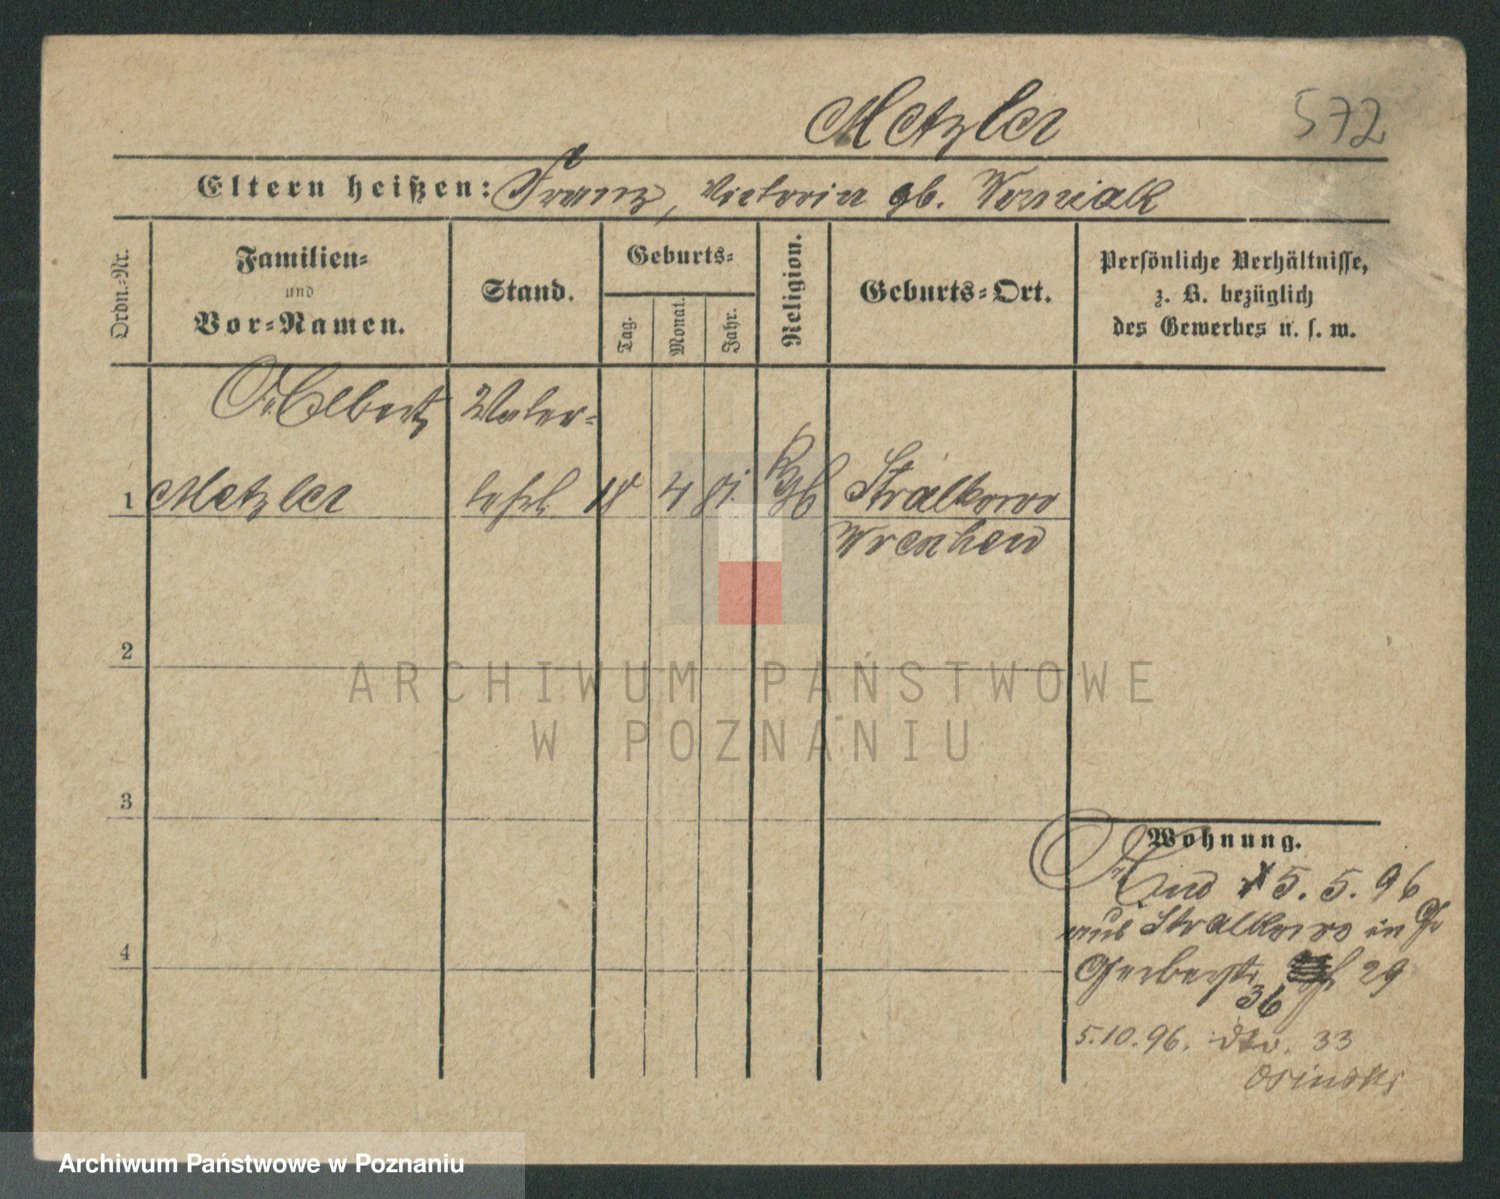 Metzler
572
Eltern heißen: Franz, Victoria gb. Wozniak
Ordn.-Nr.
Familien-
und
Vor-Namen.
Stand.
Geburts-
Tag.
Monat.
Jahr.
Religion.
Geburts-Ort.
Persönliche Verhältnisse,
z. B. bezüglich
des Gewerbes u. s. w.
Maler-
1 Metzler lehrl 18 4 81 Kth Stralkowo
Wreschen
2
3
4
Wohnung.
5. 5. 96
aus Stralkowo in
Gerberstr 36 29
5.10.96. dto. 33
Osinski
ARCHIWUM PAŃSTWOWE
W POZNANIU
Archiwum Państwowe w Poznaniu